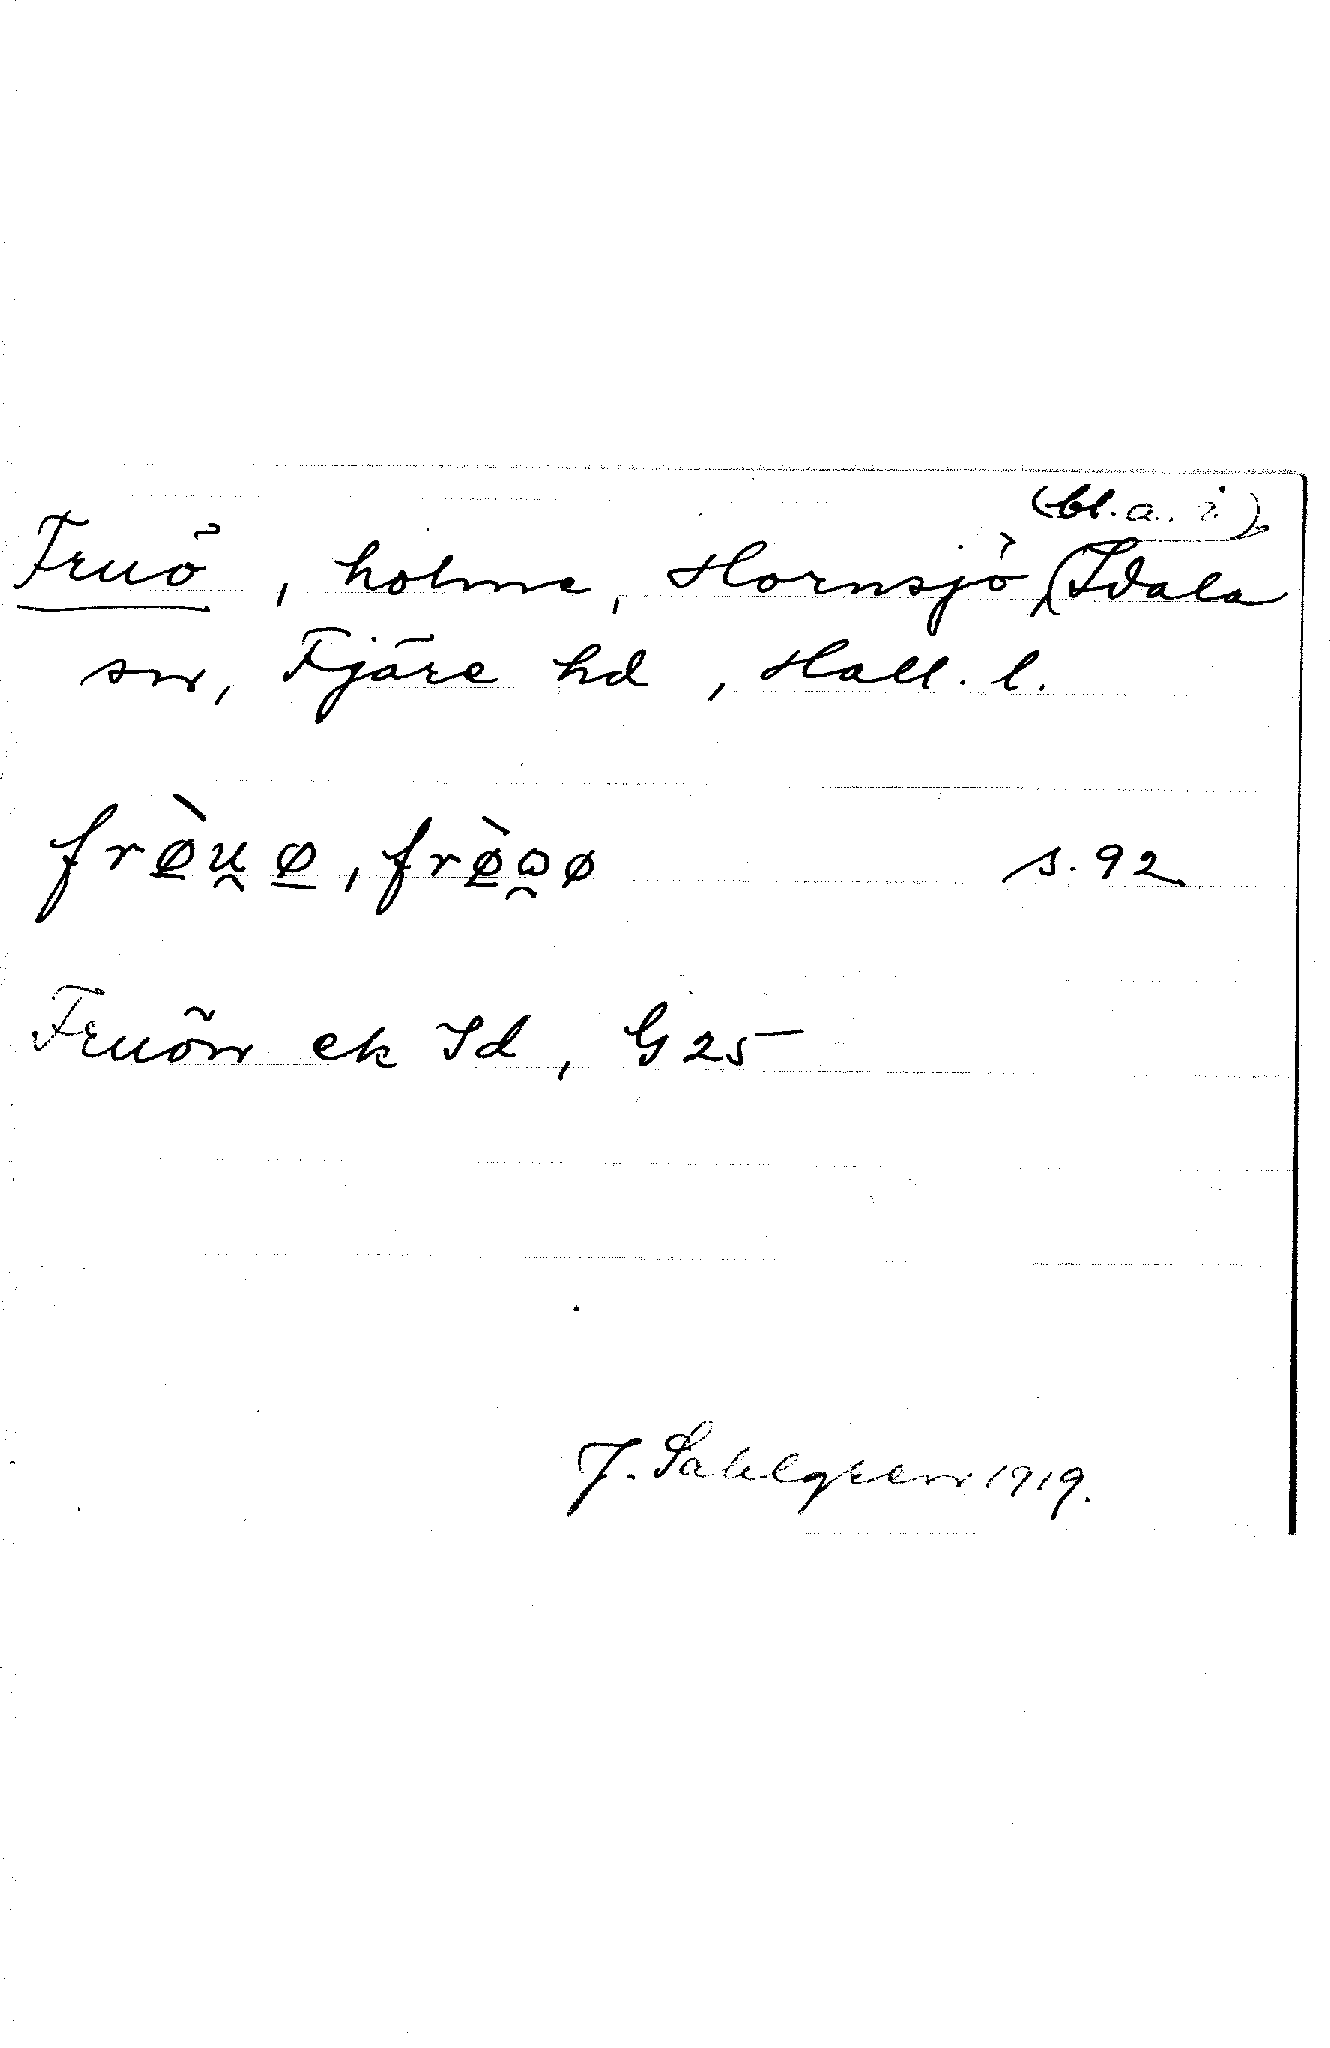 (bl. a. i)
Fruö, holme, Hornsjö, Idala
sn, Fjäre hd, Hall. l.
frø̱̀u̯ø̱, frø̱̀ω̯ø s. 92
Fruön ek Id, G 25
J. Sahlgren 1919.